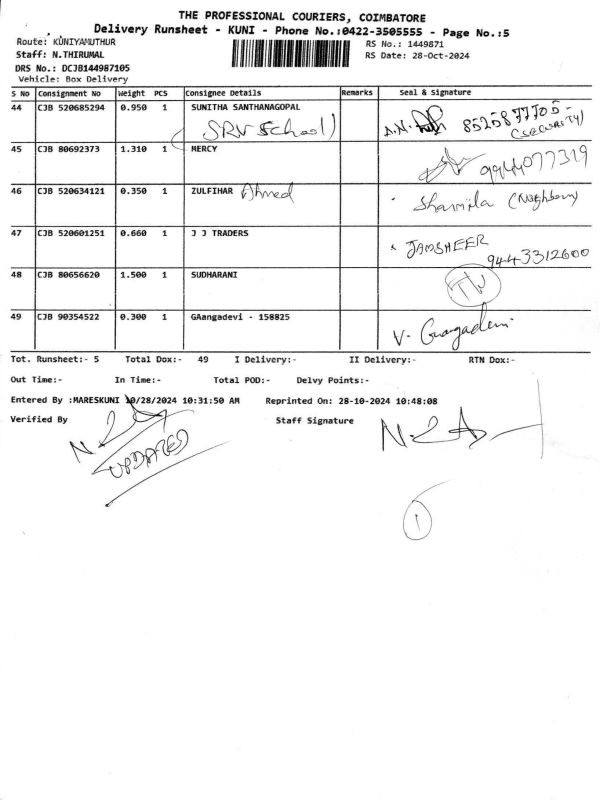 THE PROFESSIONAL COURIERS, COIMBATORE
Delivery Runsheet - KUNI - Phone No.:0422-3505555 - Page No.:5
Route: KUNIYAMUTHUR
RS No.: 1449871
Staff: N.THIRUMAL
RS Date: 28-Oct-2024
DRS No.: DCJB144987105
Vehicle: Box Delivery
S No Consignment No Weight PCS Consignee Details Remarks Seal & Signature
44 CJB 520685294 0.950 1 SUNITHA SANTHANAGOPAL
SRV School) A.N. 8525877705 (SECURITY)
45 CJB 80692373 1.310 1 MERCY
9944077329
46 CJB 520634121 0.350 1 ZULFIHAR Ahmed
Sharmila (Neighbour)
47 CJB 520601251 0.660 1 J J TRADERS
JAMSHEER
9443312600
48 CJB 80656620 1.500 1 SUDHARANI
49 CJB 90354522 0.300 1 GAangadevi - 158825
V. Guangadevi
Tot. Runsheet:- 5 Total Dox:- 49 I Delivery:- II Delivery:- RTN Dox:-
Out Time:- In Time:- Total POD:- Delvy Points:-
Entered By :MARESKUNI 10/28/2024 10:31:50 AM Reprinted On: 28-10-2024 10:48:08
Verified By Staff Signature
UPLOADED
1